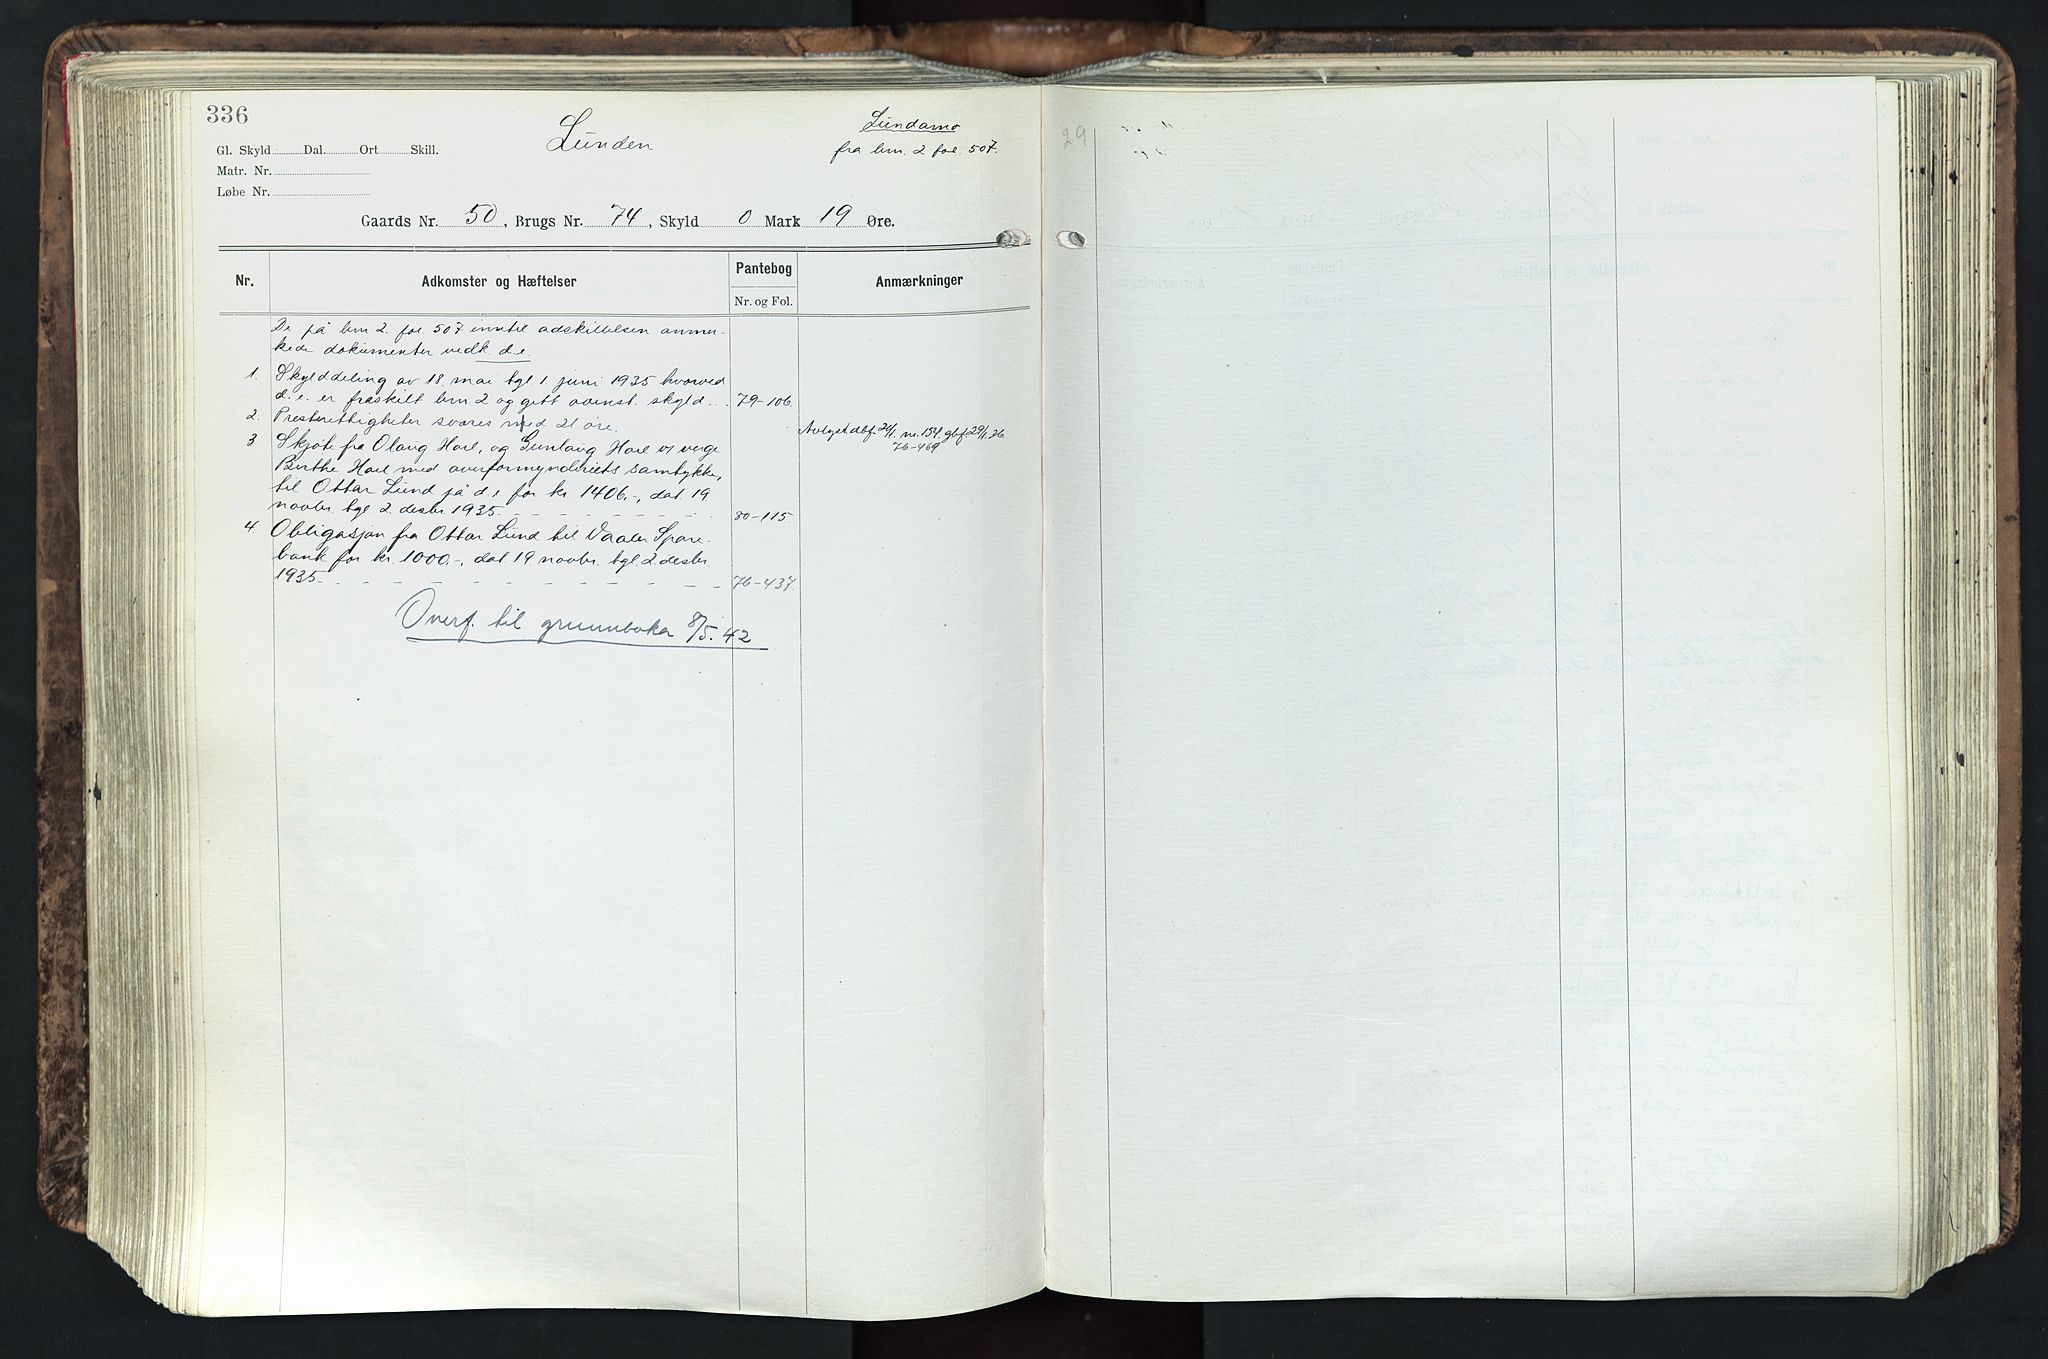 336
Lunden
Lundamo
fra brn. 2 fol. 507.
Gl. Skyld Dal. Ort Skill.
Matr. Nr.
Løbe Nr.
Gaards Nr. 50, Brugs Nr. 74, Skyld 0 Mark 19 Øre.
Nr. Adkomster og Hæftelser Pantebog Anmærkninger
Nr. og Fol.
De på brn 2. fol. 507 inntil adskillelsen anmer-
kede dokumenter vedk. d.e.
1. Skylddeling av 18. mai tgl. 1. juni 1935 hvorved
d.e. er fraskilt brn 2 og gitt ovenst. skyld. . . 79-106.
2. Presterettigheter svares med 21 øre.
3 Skjøte fra Olaug Hoel, og Gunlaug Hoel v/ verge
Berthe Hoel med overformynderiets samtykke,
til Ottar Lund på d.e for kr 1406.-, dat. 19
novbr. tgl. 2. desbr 1935. 80-115.
Avlyst dbf. 24/1 nr. 154. gbf. 29/1.36
76-469
4. Obligasjon fra Ottar Lund til Vaaler Spare-
bank for kr. 1000.-, dat. 19. novbr. tgl. 2. desbr.
1935. 76-437.
Overf. til grunnboka 8/5. 42
29